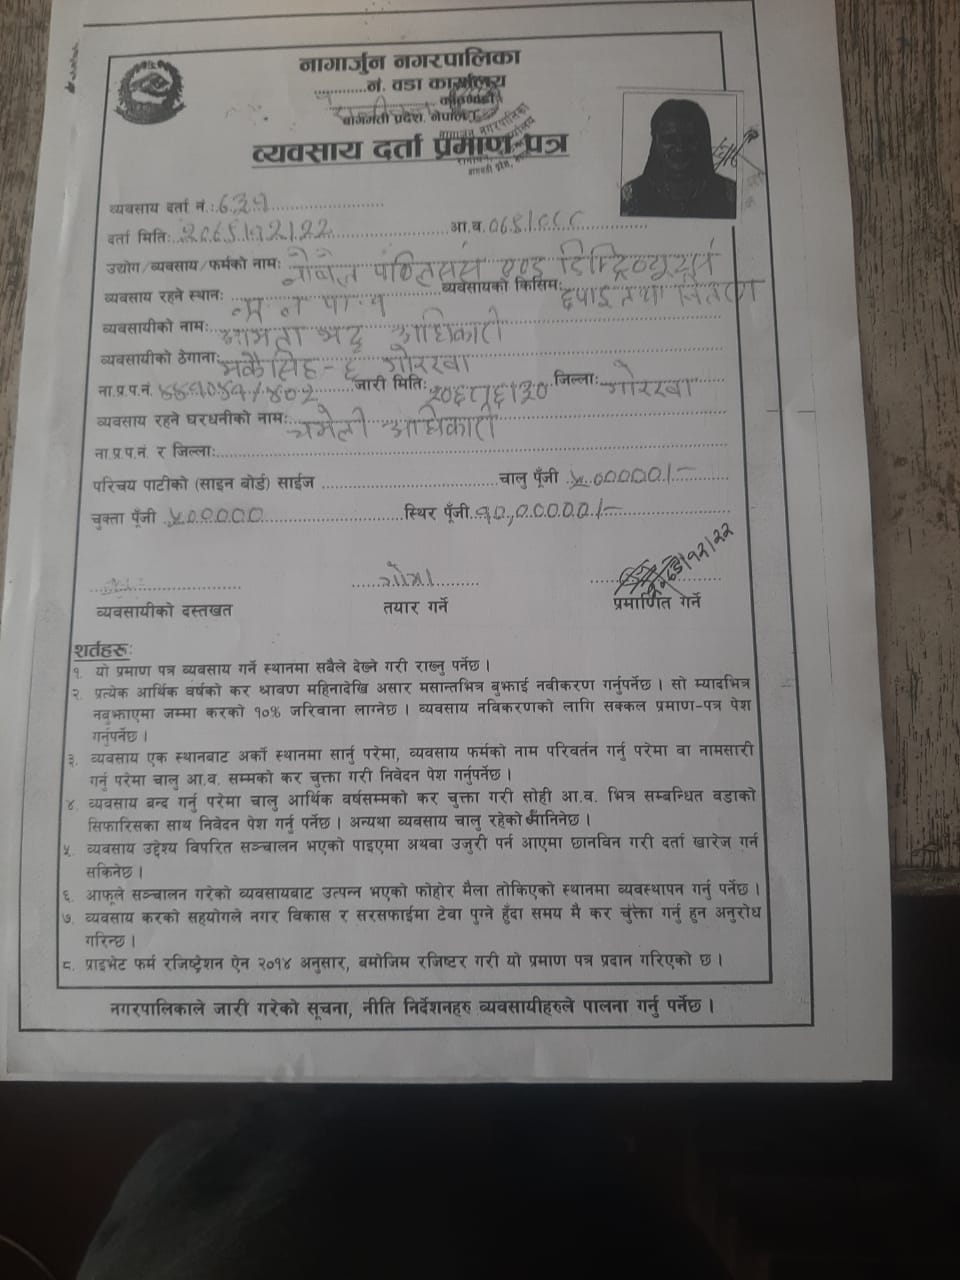 नागार्जुन नगरपालिका
.......नं. वडा कार्यालय
काठमाडौं
बागमती प्रदेश, नेपाल
व्यवसाय दर्ता प्रमाण-पत्र
व्यवसाय दर्ता नं.:
दर्ता मिति: आ.व.
उद्योग/व्यवसाय/फर्मको नाम: नोबेल एण्ड
व्यवसाय रहने स्थान: व्यवसायको किसिम: छपाई तथा वितरण
व्यवसायीको नाम: अधिकारी
व्यवसायीको ठेगाना: गोरखा
ना.प्र.प.नं. जारी मिति: जिल्ला: गोरखा
व्यवसाय रहने घरधनीको नाम: चमेली अधिकारी
ना.प्र.प.नं. र जिल्ला:
परिचय पाटीको (साइन बोर्ड) साईज चालु पूँजी ५०००००।-
चुक्ता पूँजी ५००००० स्थिर पूँजी १०,०००००।-
व्यवसायीको दस्तखत तयार गर्ने प्रमाणित गर्ने
शर्तहरू:
१. यो प्रमाण पत्र व्यवसाय गर्ने स्थानमा सबैले देख्ने गरी राख्नु पर्नेछ ।
२. प्रत्येक आर्थिक वर्षको कर श्रावण महिनादेखि असार मसान्तभित्र बुझाई नवीकरण गर्नुपर्नेछ । सो म्यादभित्र
नबुझाएमा जम्मा करको १०% जरिवाना लाग्नेछ । व्यवसाय नविकरणको लागि सक्कल प्रमाण-पत्र पेश
गर्नुपर्नेछ ।
३. व्यवसाय एक स्थानबाट अर्को स्थानमा सार्नु परेमा, व्यवसाय फर्मको नाम परिवर्तन गर्नु परेमा वा नामसारी
गर्नु परेमा चालु आ.व. सम्मको कर चुक्ता गरी निवेदन पेश गर्नुपर्नेछ ।
४. व्यवसाय बन्द गर्नु परेमा चालु आर्थिक वर्षसम्मको कर चुक्ता गरी सोही आ.व. भित्र सम्बन्धित वडाको
सिफारिसका साथ निवेदन पेश गर्नु पर्नेछ । अन्यथा व्यवसाय चालु रहेको मानिनेछ ।
५. व्यवसाय उद्देश्य विपरित सञ्चालन भएको पाइएमा अथवा उजुरी पर्न आएमा छानविन गरी दर्ता खारेज गर्न
सकिनेछ ।
६. आफूले सञ्चालन गरेको व्यवसायबाट उत्पन्न भएको फोहोर मैला तोकिएको स्थानमा व्यवस्थापन गर्नु पर्नेछ ।
७. व्यवसाय करको सहयोगले नगर विकास र सरसफाईमा टेवा पुग्ने हुँदा समय मै कर चुक्ता गर्नु हुन अनुरोध
गरिन्छ ।
८. प्राइभेट फर्म रजिष्ट्रेशन ऐन २०१४ अनुसार, बमोजिम रजिष्टर गरी यो प्रमाण पत्र प्रदान गरिएको छ ।
नगरपालिकाले जारी गरेको सूचना, नीति निर्देशनहरु व्यवसायीहरुले पालना गर्नु पर्नेछ ।